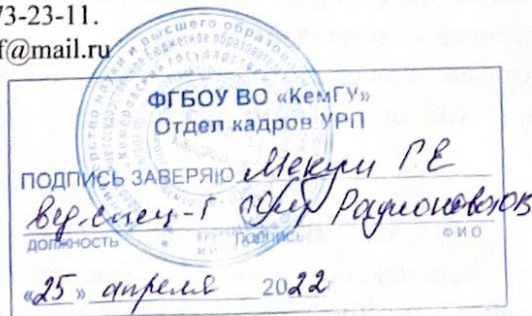 73-23-11.
f@mail.ru
ФГБОУ ВО «КемГУ»
Отдел кадров УРП
ПОДПИСЬ ЗАВЕРЯЮ Мекуш Г Е
вед. спец-т Родионова Ю В
ДОЛЖНОСТЬ ПОДПИСЬ Ф И О
«25» апреля 2022 г